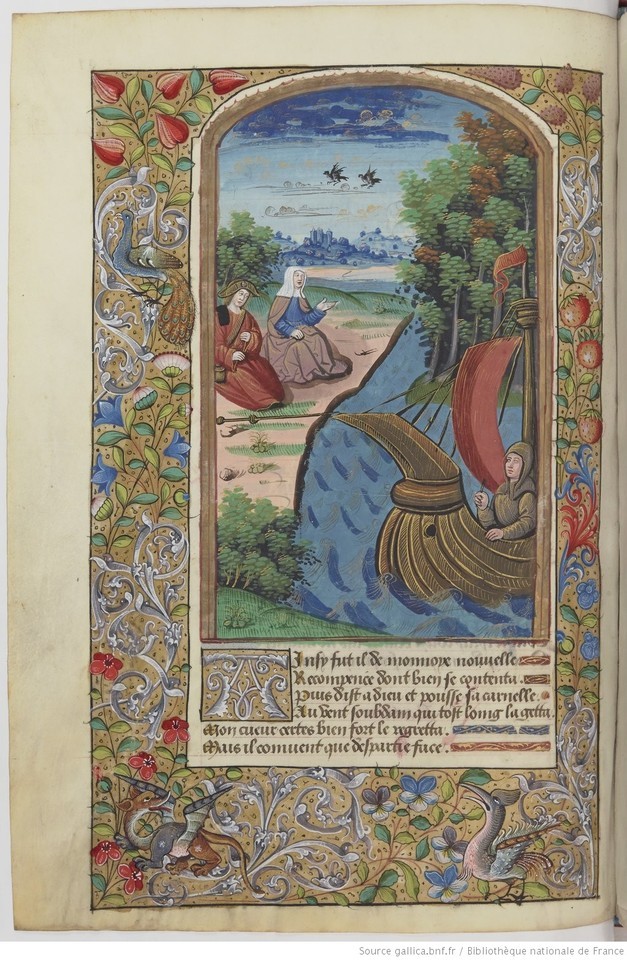 Ainsy fut il de monnoye nouvelle
Recompence dont bien se contenta.
Puis dist adieu et pousse sa carnelle.
Au vent soubdain qui tost loing la getta.
Mon cueur certes bien fort le regretta.
Mais il convient que despartie face.
Source gallica.bnf.fr / Bibliothèque nationale de France